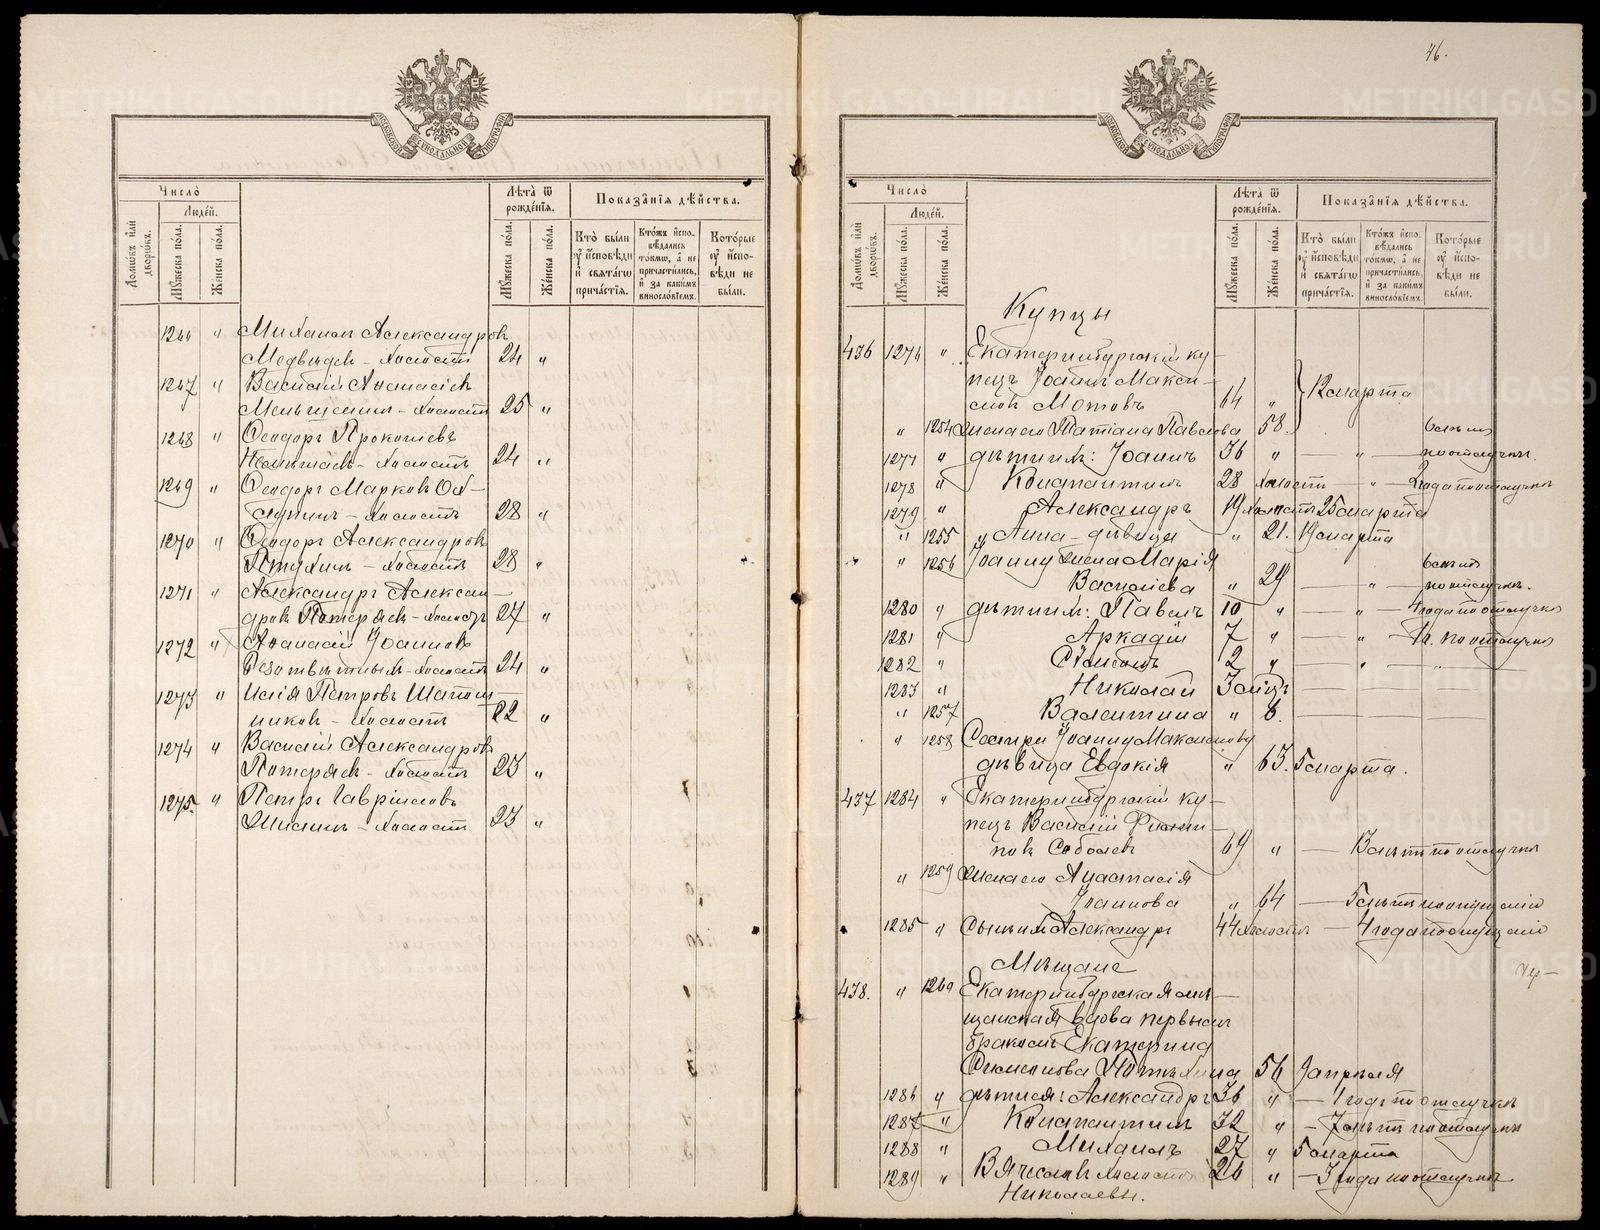 46.
Число̀
Люде́й.
Домѡ́въ и҆лѝ дворѡ́въ.
Мꙋ́жеска по́ла.
Же́нска по́ла.
Лѣ́та ѿ рожде́нїѧ.
Мꙋ́жеска по́ла.
Же́нска по́ла.
Показа̑нїѧ дѣ́йства.
Кто̀ бы́ли ᲂу҆ и҆сповѣди и҆ свѧта́гѡ прича́стїѧ.
Кто́жъ и҆спо-вѣдались то́кмѡ, а҆ не причасти́лись, и҆ за каки́мъ винослѡ́вїемъ.
Кото́рые ᲂу҆ и҆спо-вѣди не бы́ли.
1266 " Михаилъ Александровъ
Медвѣдевъ - холостъ 24 "
1267 " Василій Аѳанасіевъ
Меньщенинъ - холостъ 25 "
1268 " Ѳеодоръ Прокопіевъ
- холостъ 24 "
1269 " Ѳеодоръ Марковъ
- холостъ 28 "
1270 " Ѳеодоръ Александровъ
Птухинъ - холостъ 28 "
1271 " Александръ Алексан-
дровъ Потеряевъ - холостъ 27 "
1272 " Аѳанасій Іоанновъ
Безотвѣтныхъ - холостъ 24 "
1273 " Илія Петровъ Шапош-
никовъ - холостъ 22 "
1274 " Василій Александровъ
Потеряевъ - холостъ 23 "
1275 " Петръ Гавріиловъ
Шишинъ - холостъ 23 "
Число̀
Люде́й.
Домѡ́въ и҆лѝ дворѡ́въ.
Мꙋ́жеска по́ла.
Же́нска по́ла.
Лѣ́та ѿ рожде́нїѧ.
Мꙋ́жеска по́ла.
Же́нска по́ла.
Показа̑нїѧ дѣ́йства.
Кто̀ бы́ли ᲂу҆ и҆сповѣди и҆ свѧта́гѡ прича́стїѧ.
Кто́жъ и҆спо-вѣдались то́кмѡ, а҆ не причасти́лись, и҆ за каки́мъ винослѡ́вїемъ.
Кото́рые ᲂу҆ и҆спо-вѣди не бы́ли.
Купцы
436 1276 " Екатеринбургскій ку-
пецъ Іоаннъ Макси-
мовъ Мотовъ 64 " 12 марта
" 1254 Жена его Татіана Павлова 58. 6 лѣтъ
1277 " дѣти ихъ: Іоаннъ 36 " — " — по отлучкѣ.
1278 " Константинъ 28 холостъ — " — 2 года по отлучкѣ
1279 " Александръ 19 холостъ 25 марта
" 1255 " Анна - дѣвица " 21. 19 марта
" 1256 Іоанну жена Марія 6 лѣтъ
Василіева " 29 — " — по отлучкѣ.
1280 " дѣти ихъ: Павелъ 10 " — " — 4 года по отлучкѣ
1281 " Аркадій 7 " — " — 1 г. по отлучкѣ
1282 " Симеонъ 2 " " — " —
1283 " Николай 3 мѣс. — — —
" 1257 Валентина " 6. — — —
" 1258 Сестра Іоанну Максимову
дѣвица Евдокія " 63. 5 марта.
437 1284 " Екатеринбургскій ку-
пецъ Василій Филип-
повъ Соболевъ 69 " — 13 лѣтъ по отлучкѣ
" 1259 Жена его Анастасія
Іоаннова " 64 — 5 лѣтъ по опущенію
1285 " Сынъ ихъ Александръ 44 холостъ — 4 года по опущенію
Мѣщане
438. " 1260 Екатеринбургская мѣ-
щанская вдова первымъ
бракомъ Екатерина
Симеонова 56 1 апрѣля
1286 " дѣти ея: Александръ 36 " — 1 годъ по отлучкѣ
1287 " Константинъ 32 " — 7 лѣтъ по отлучкѣ
1288 " Михаилъ 27 " 5 марта
1289 " Вячеславъ холостъ 26 " — 3 года по отлучкѣ
Николаевы.